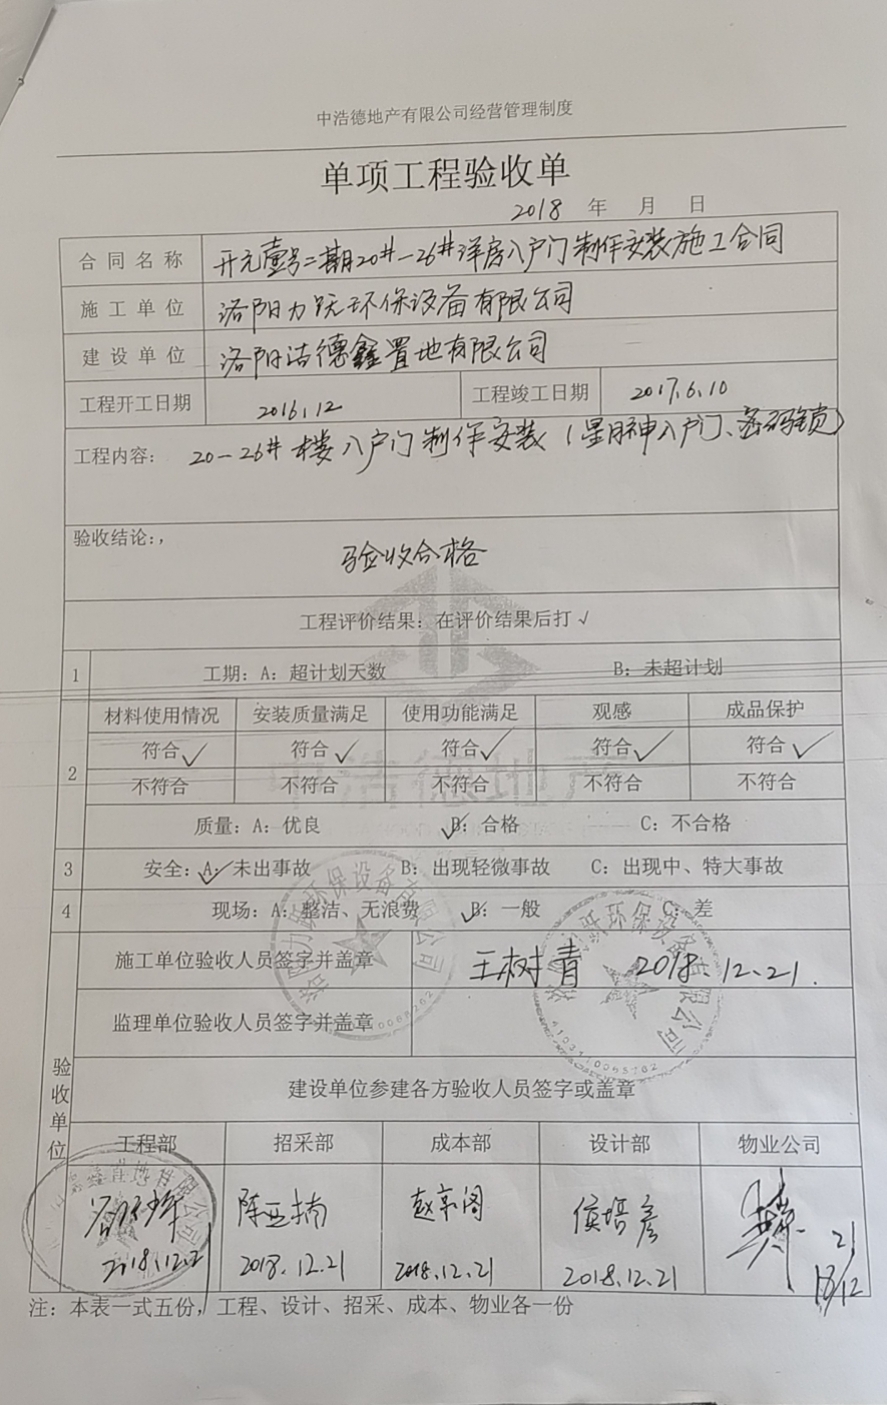 中浩德地产有限公司经营管理制度
单项工程验收单
2018 年 月 日
合同名称 开元壹号二期20#-26#洋房入户门制作安装施工合同
施工单位 洛阳力跃环保设备有限公司
建设单位 洛阳洁德鑫置地有限公司
工程开工日期 2016.12 工程竣工日期 2017.6.10
工程内容: 20-26#楼入户门制作安装(星月神入户门、密码锁)
验收结论:,
验收合格
工程评价结果: 在评价结果后打√
1 工期: A: 超计划天数 B: 未超计划
材料使用情况 安装质量满足 使用功能满足 观感 成品保护
符合✓ 符合✓ 符合✓ 符合✓ 符合✓
2
不符合 不符合 不符合 不符合 不符合
质量: A: 优良 ✓B: 合格 C: 不合格
3 安全: A:✓未出事故 B: 出现轻微事故 C: 出现中、特大事故
4 现场: A: 整洁、无浪费 ✓B: 一般 C: 差
施工单位验收人员签字并盖章 王树青 2018.12.21.
监理单位验收人员签字并盖章
验收单位
建设单位参建各方验收人员签字或盖章
工程部 招采部 成本部 设计部 物业公司
陈亚楠 侯培彦
2018.12.21 2018.12.21 2018.12.21 2018.12.21 21/12
注: 本表一式五份, 工程、设计、招采、成本、物业各一份